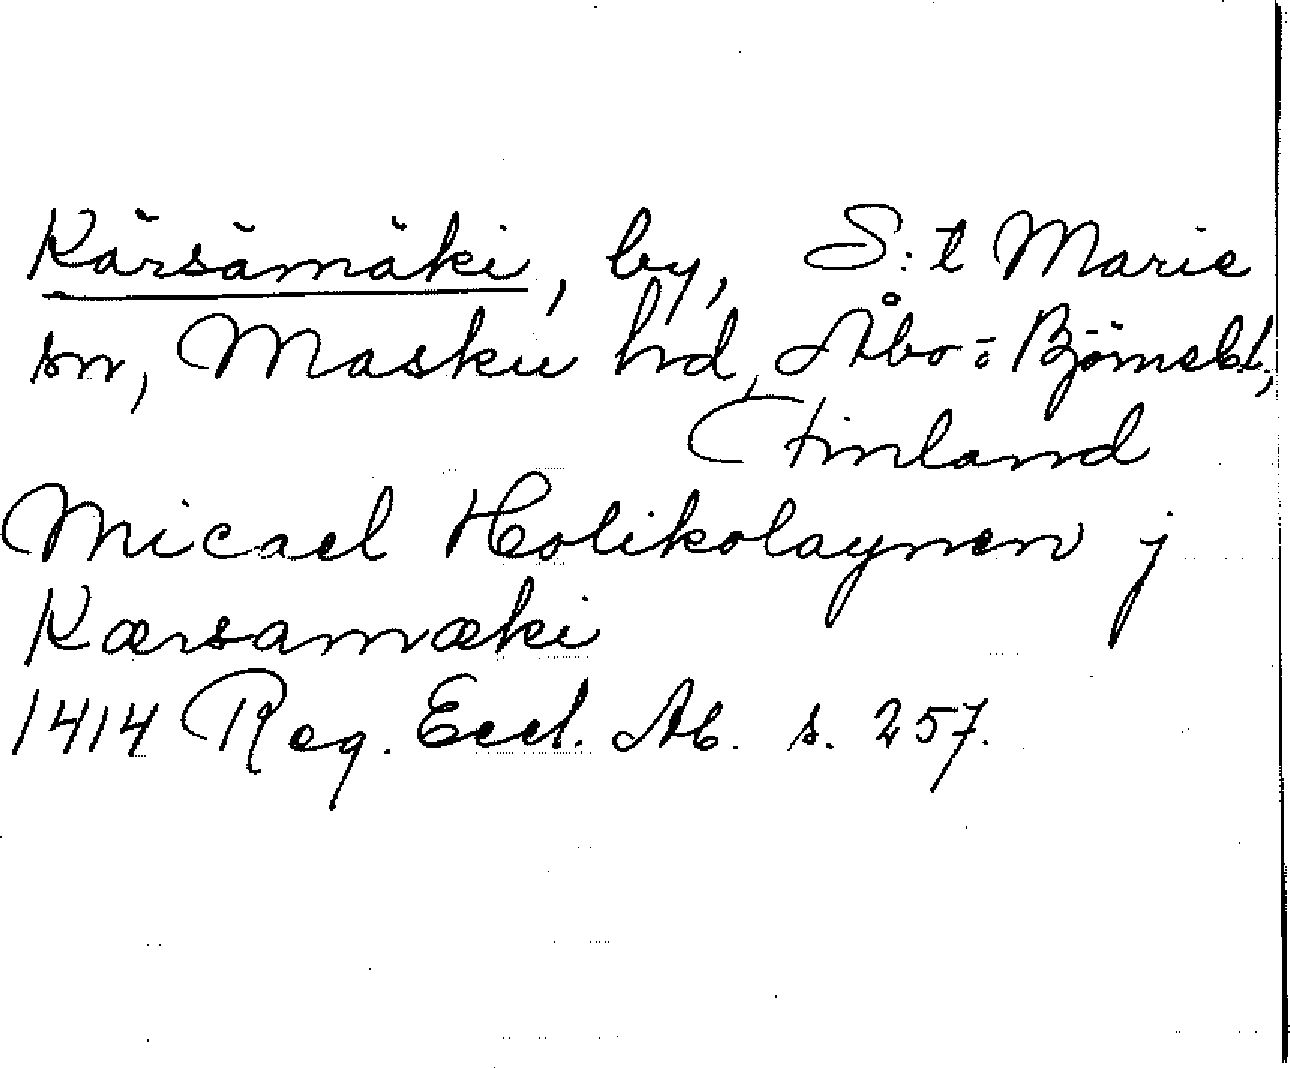 Kärsämäki, by, S:t Marie
sn, Masku hd, Åbo- o Björnebl,
Finland
Micael Holikolaynen j
Kærsamæki
1414 Reg. Eccl. Ab. s. 257.